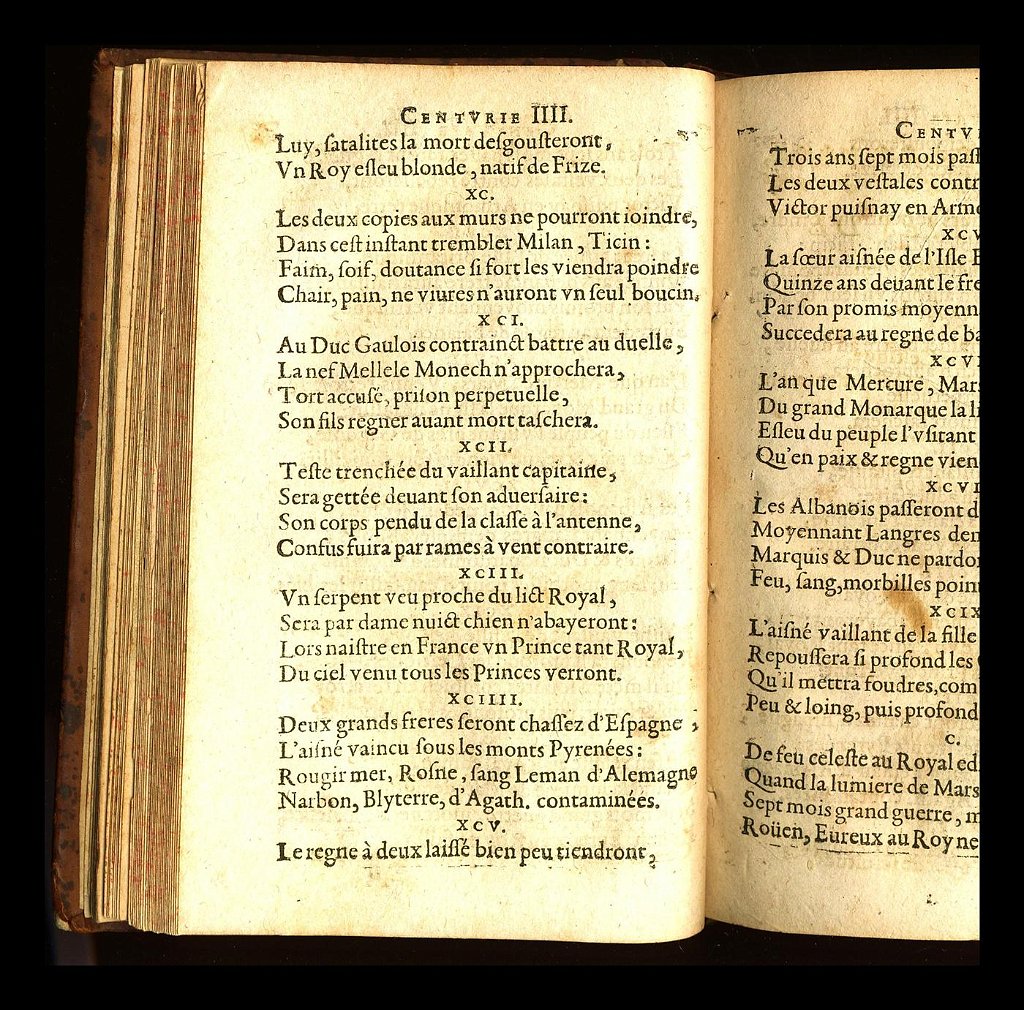 CENTVRIE IIII.
Luy, ſatalites la mort deſgouſteront,
Vn Roy eſleu blonde, natif de Frize.
XC.
Les deux copies aux murs ne pourront ioindre,
Dans ceſt inſtant trembler Milan, Ticin:
Faim, ſoif, doutance ſi fort les viendra poindre
Chair, pain, ne viures n'auront vn ſeul boucin.
XCI.
Au Duc Gaulois contrainct battre au duelle,
La nef Mellele Monech n'approchera,
Tort accuſé, priſon perpetuelle,
Son fils regner auant mort taſchera.
XCII.
Teſte trenchée du vaillant capitaine,
Sera gettée deuant ſon aduerſaire:
Son corps pendu de la claſſe à l'antenne,
Confus fuira par rames à vent contraire.
XCIII.
Vn ſerpent veu proche du lict Royal,
Sera par dame nuict chien n'abayeront:
Lors naiſtre en France vn Prince tant Royal,
Du ciel venu tous les Princes verront.
XCIIII.
Deux grands freres ſeront chaſſez d'Eſpagne,
L'aiſné vaincu ſous les monts Pyrenées:
Rougir mer, Roſne, ſang Leman d'Alemagne
Narbon, Blyterre, d'Agath. contaminées.
XCV.
Le regne à deux laiſſé bien peu tiendront,
CENTV
Trois ans ſept mois paſſ
Les deux veſtales contr
Victor puiſnay en Arme
XCV
La ſœur aiſnée de l'Iſle B
Quinze ans deuant le fre
Par ſon promis moyenn
Succedera au regne de ba
XCVI
L'an que Mercure, Mar
Du grand Monarque la li
Eſleu du peuple l'vſitant
Qu'en paix & regne vien
XCVI
Les Albanois paſſeront d
Moyennant Langres dem
Marquis & Duc ne pardo
Feu, ſang, morbilles poin
XCIX
L'aiſné vaillant de la fille
Repouſſera ſi profond les
Qu'il mettra foudres, com
Peu & loing, puis profond
C.
De feu celeſte au Royal ed
Quand la lumiere de Mars
Sept mois grand guerre, m
Roüen, Eureux au Roy ne